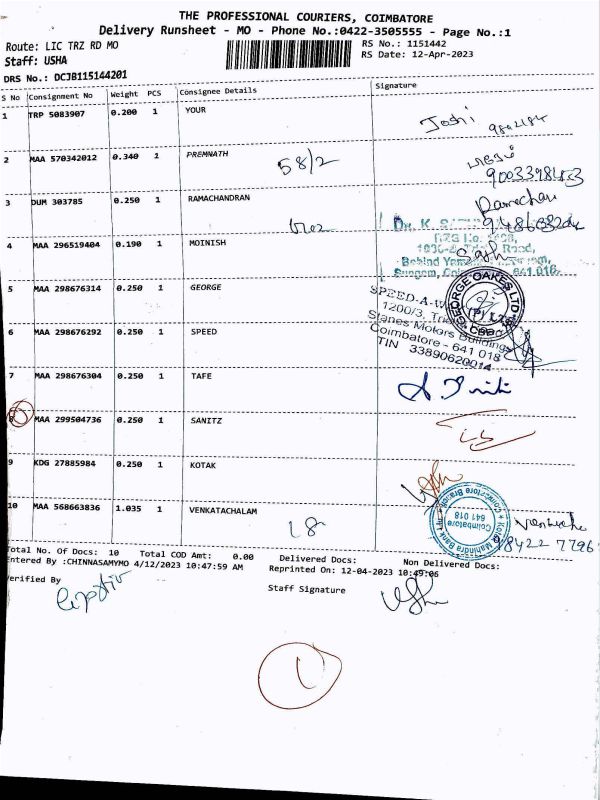 THE PROFESSIONAL COURIERS, COIMBATORE
Delivery Runsheet - MO - Phone No.:0422-3505555 - Page No.:1
Route: LIC TRZ RD MO
RS No.: 1151442
Staff: USHA
RS Date: 12-Apr-2023
DRS No.: OCJB115144201
S No Consignment No Weight PCS Consignee Details Signature
1 TRP 5083907 0.200 1 YOUR
Joshi
2 MAA 570342012 0.340 1 PREMNATH 58/2
3 DUM 303785 0.250 1 RAMACHANDRAN
Ramechan
Dr. K.
4 MAA 296519404 0.190 1 MOINISH
Road,
Behind
641 018.
5 MAA 298676314 0.250 1 GEORGE
GEORGE OAKES LTD
SPEED-A-W
(P) LTD
1200/3,
6 MAA 298676292 0.250 1 SPEED
Stanes Motors Buildings
Coimbatore - 641 018
TIN 33890620014
7 MAA 298676304 0.250 1 TAFE
8 MAA 299504736 0.250 1 SANITZ
9 KDG 27885984 0.250 1 KOTAK
10 MAA 568663836 1.035 1 VENKATACHALAM
18
Kotak Mahindra Bank
Coimbatore Branch
Coimbatore
641 018
Total No. Of Docs: 10 Total COD Amt: 0.00 Delivered Docs: Non Delivered Docs:
Entered By :CHINNASAMYMO 4/12/2023 10:47:59 AM Reprinted On: 12-04-2023 10:49:06
Verified By
Staff Signature